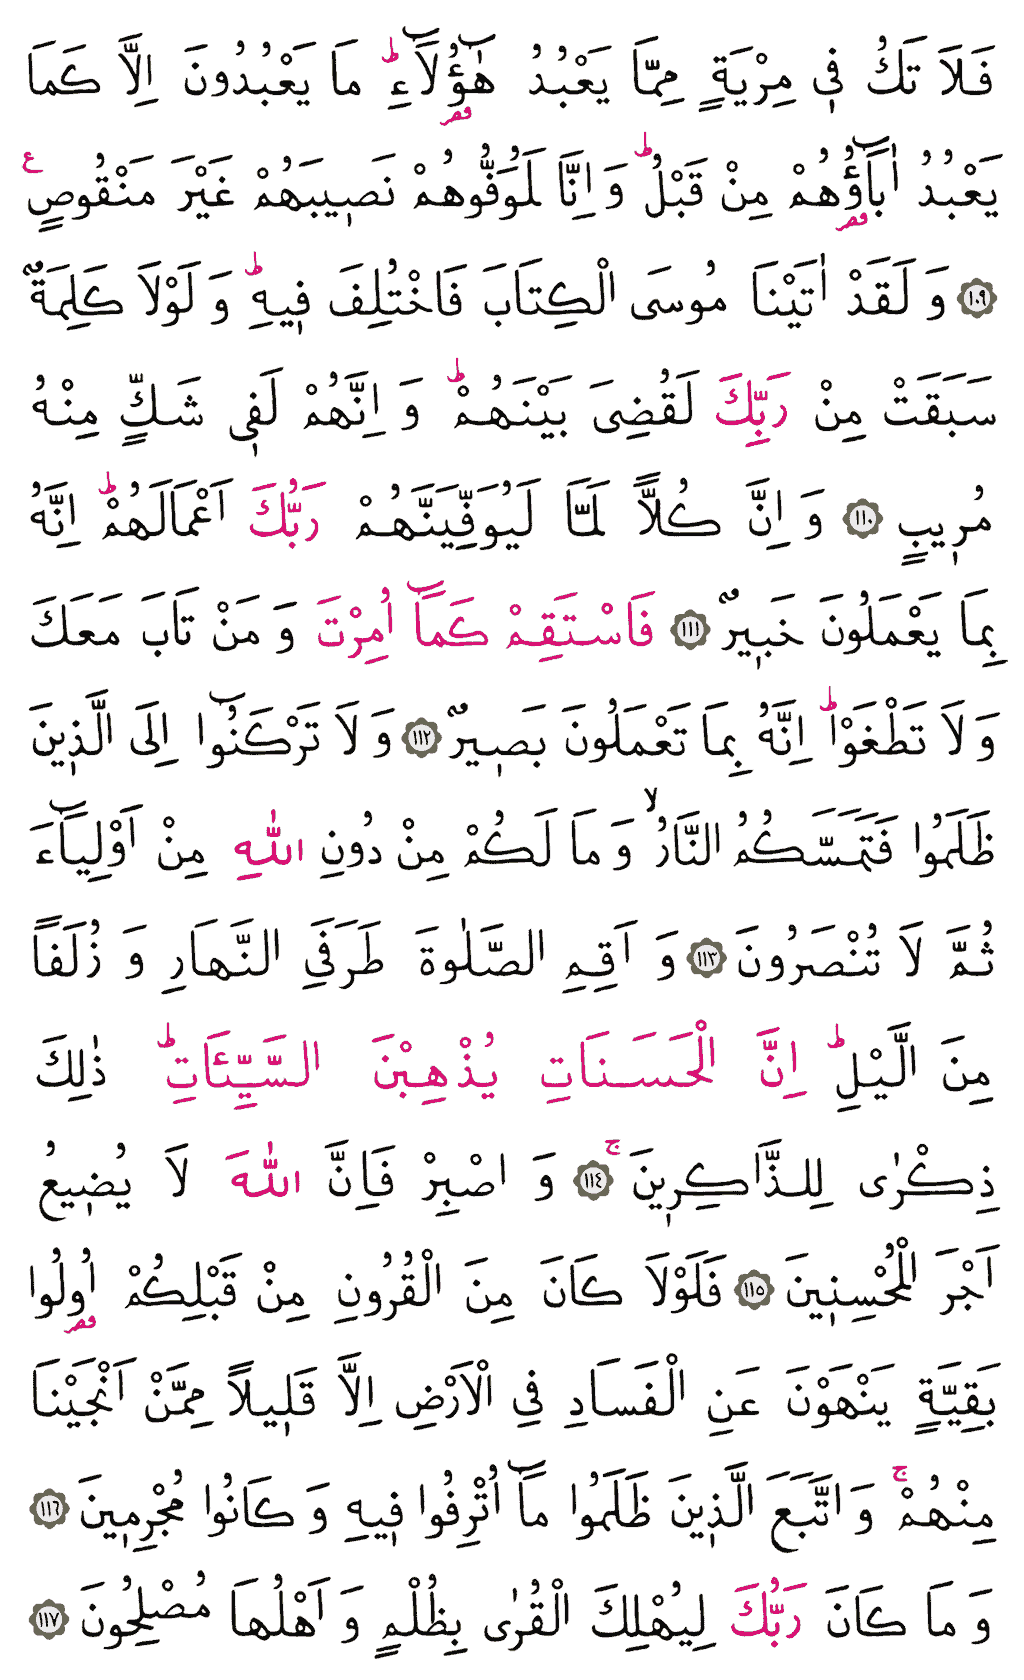 فَلَا تَكُ ف۪ي مِرْيَةٍ مِمَّا يَعْبُدُ هٰٓؤُ۬لَٓاءِۜ مَا يَعْبُدُونَ اِلَّا كَمَا
يَعْبُدُ اٰبَٓاؤُ۬هُمْ مِنْ قَبْلُۜ وَاِنَّا لَمُوَفُّوهُمْ نَص۪يبَهُمْ غَيْرَ مَنْقُوصٍ ع
﴿١٠٩﴾ وَلَقَدْ اٰتَيْنَا مُوسَى الْكِتَابَ فَاخْتُلِفَ ف۪يهِۜ وَلَوْلَا كَلِمَةٌ
سَبَقَتْ مِنْ رَبِّكَ لَقُضِيَ بَيْنَهُمْۜ وَاِنَّهُمْ لَف۪ي شَكٍّ مِنْهُ
مُر۪يبٍ ﴿١١٠﴾ وَاِنَّ كُلًّا لَمَّا لَيُوَفِّيَنَّهُمْ رَبُّكَ اَعْمَالَهُمْۜ اِنَّهُ
بِمَا يَعْمَلُونَ خَب۪يرٌ ﴿١١١﴾ فَاسْتَقِمْ كَمَٓا اُمِرْتَ وَمَنْ تَابَ مَعَكَ
وَلَا تَطْغَوْاۜ اِنَّهُ بِمَا تَعْمَلُونَ بَص۪يرٌ ﴿١١٢﴾ وَلَا تَرْكَنُٓوا اِلَى الَّذ۪ينَ
ظَلَمُوا فَتَمَسَّكُمُ النَّارُۙ وَمَا لَكُمْ مِنْ دُونِ اللّٰهِ مِنْ اَوْلِيَٓاءَ
ثُمَّ لَا تُنْصَرُونَ ﴿١١٣﴾ وَاَقِمِ الصَّلٰوةَ طَرَفَيِ النَّهَارِ وَزُلَفًا
مِنَ الَّيْلِۜ اِنَّ الْحَسَنَاتِ يُذْهِبْنَ السَّيِّـَٔاتِۜ ذٰلِكَ
ذِكْرٰى لِلذَّاكِر۪ينَۚ ﴿١١٤﴾ وَاصْبِرْ فَاِنَّ اللّٰهَ لَا يُض۪يعُ
اَجْرَ الْمُحْسِن۪ينَ ﴿١١٥﴾ فَلَوْلَا كَانَ مِنَ الْقُرُونِ مِنْ قَبْلِكُمْ اُو۬لُوا
بَقِيَّةٍ يَنْهَوْنَ عَنِ الْفَسَادِ فِي الْاَرْضِ اِلَّا قَل۪يلًا مِمَّنْ اَنْجَيْنَا
مِنْهُمْۚ وَاتَّبَعَ الَّذ۪ينَ ظَلَمُوا مَٓا اُتْرِفُوا ف۪يهِ وَكَانُوا مُجْرِم۪ينَ ﴿١١٦﴾
وَمَا كَانَ رَبُّكَ لِيُهْلِكَ الْقُرٰى بِظُلْمٍ وَاَهْلُهَا مُصْلِحُونَ ﴿١١٧﴾